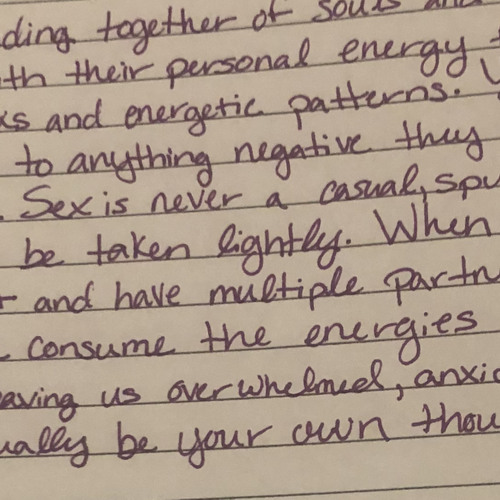 ding together of souls and
th their personal energy
ks and energetic patterns.
to anything negative they
. Sex is never a casual, spu
be taken lightly. When
and have multiple partn
consume the energies
eaving us overwhelmed, anxio
ually be your own thou